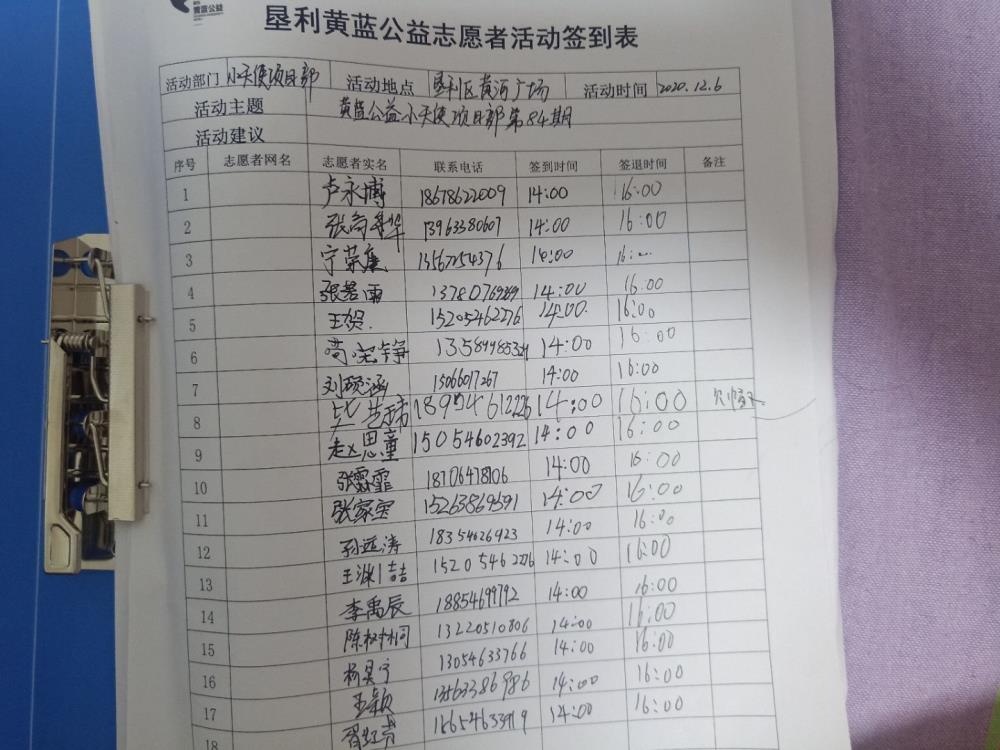 黄蓝公益
垦利黄蓝公益志愿者活动签到表
活动部门 小天使项目部 活动地点 垦利区黄河广场 活动时间 2020.12.6
活动主题 黄蓝公益小天使项目部第84期
活动建议
序号 志愿者网名 志愿者实名 联系电话 签到时间 签退时间 备注
1 卢永博 18678622009 14:00 16:00
2 13963380607 14:00 16:00
3 宁荣 13567254376 14:00 16:
4 张若雨 14:00 16:00
5 王贺 15205462276 14:00 16:00
6 14:00 16:00
7 刘硕涵 15066017267 14:00 16:00
8 18954612226 14:00 16:00
9 赵思童 15054602392 14:00 16:00
10 张霖霏 18706478106 14:00 16:00
11 张家宝 15263869591 14:00 16:00
12 孙远涛 18354626923 14:00 16:00
13 王渊喆 15205462276 14:00 16:00
14 李禹辰 18854699792 14:00 16:00
15 陈树桐 13220510806 14:00 16:00
16 杨昊宁 13054633766 14:00 16:00
17 王颖 13563386986 14:00 16:00
18 14:00 16:00